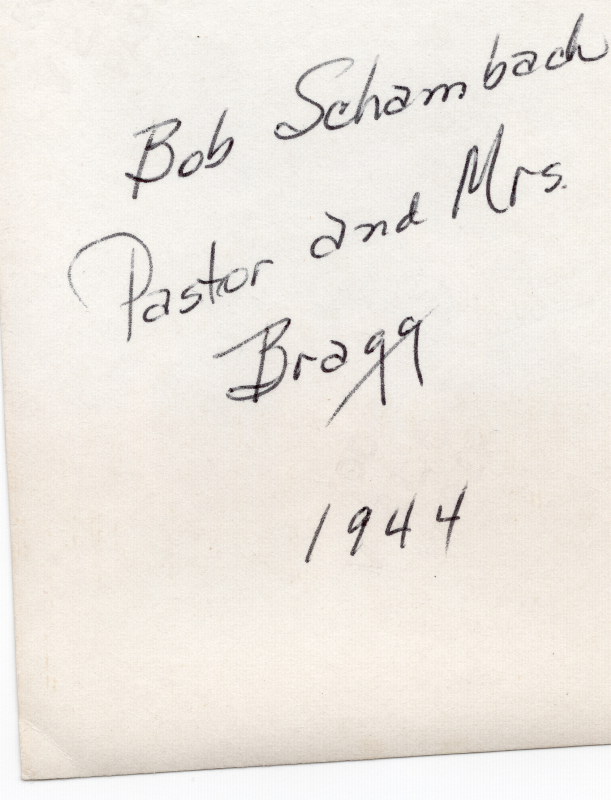 Bob Schambach
Pastor and Mrs.
Bragg
1944